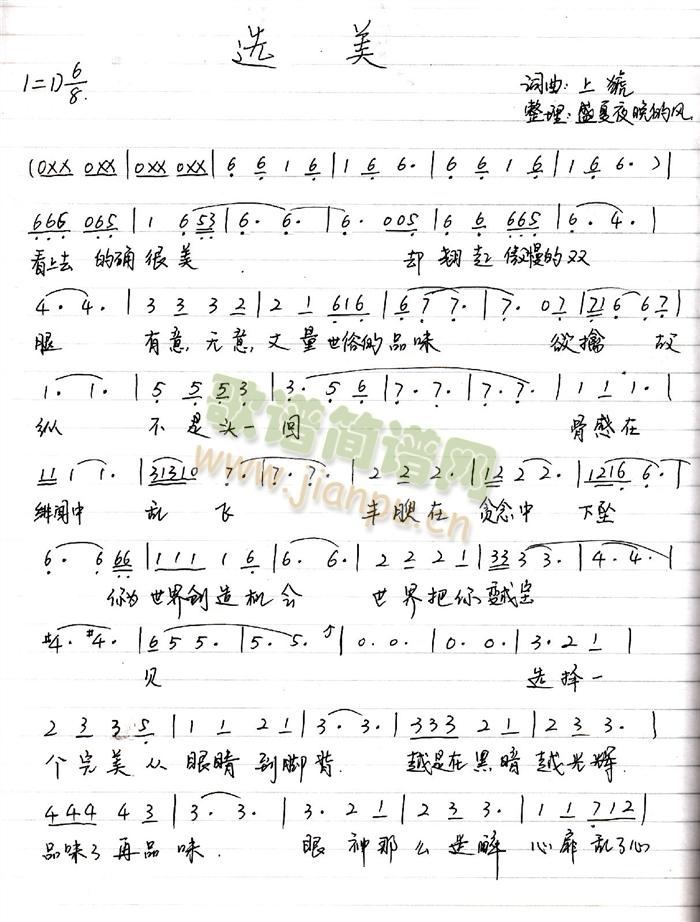 选 美
1=D 6/8.
词曲:上
整理:盛夏夜晚的风
(0XX 0XX|0XX 0XX|6 6 1 6|1 6 6.|6 6 1 6|1 6 6.)|
666 065|1 6 53|6. 6.|6. 005|6 6 665|6. 4.|
看上去 的确很美 却翘起傲慢的双
4. 4.|3 3 3 2|2 1 616|6 7 7.|7. 07|716 67|
腿 有意,无意,丈量世俗的品味 欲擒 故
1. 1.|5 5 5 3|3. 5 6|7. 7.|7. 7.|1 1 1.|
纵 不是头一回 骨感在
歌谱简谱网
www.jianpu.cn
11 1 1.|31310 7.|7. 7.|2 2 2.|12 2 2.|1216 6.|
绯闻中 乱 飞 丰腴在 贪念中 下坠
6. 6 66|111 1 6|6. 6.|2 2 2 1|333 3 3.|4. 4.|
你为世界创造机会 世界把你变成宝
#4. #4.|6 5 5.|5. 5.|0. 0.|0. 0.|3. 2 1|
贝 选择一
2 3 3 5|1 1 2 1|3. 3.|333 2 1|2 3 3.|
个完美从眼睛到脚背. 越是在黑暗越光辉.
444 4 3|3. 3.|3. 2 1|2 3 3.|1 1 712|
品味了再品味. 眼神那么迷醉 心扉乱了心